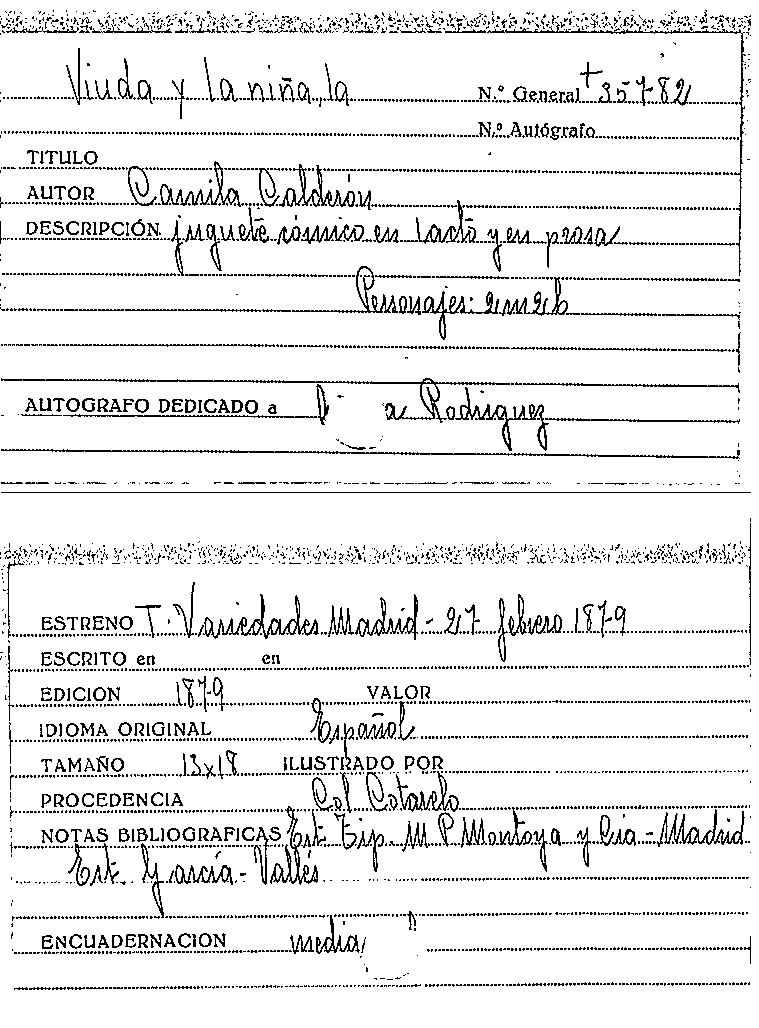 Viuda y la niña, la N.º General +357-82
N.º Autógrafo
TITULO
AUTOR Camila Calderón
DESCRIPCIÓN juguete cómico en 1 acto y en prosa
Personajes: 2 m 2 h
AUTOGRAFO DEDICADO a a Rodriguez
ESTRENO T. Variedades Madrid - 27 febrero 1879
ESCRITO en en
EDICION 1879 VALOR
IDIOMA ORIGINAL Español
TAMAÑO 13x18 ILUSTRADO POR
PROCEDENCIA Col Cotarelo
NOTAS BIBLIOGRAFICAS Est. Tip. M P Montoya y Cia - Madrid
Est. García - Vallés
ENCUADERNACION media